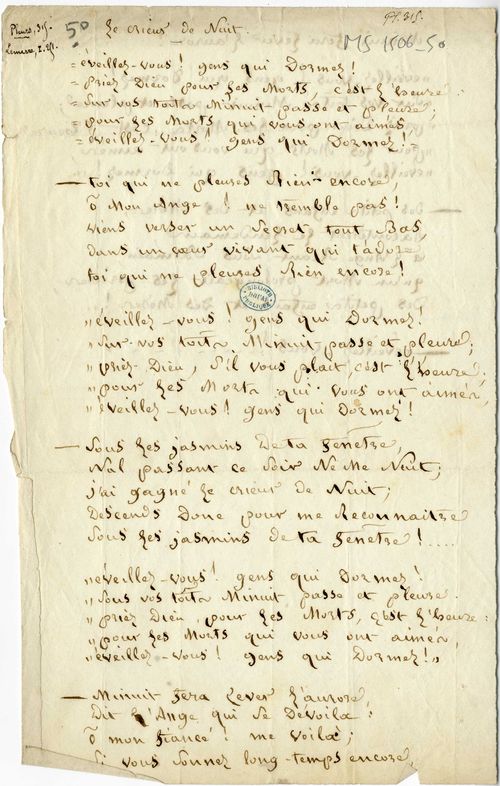 Pleurs, 315.
50
Pl. 315.
Le crieur de Nuit.
MS-1506-50
= éveillez-vous! gens qui Dormez!
= priez Dieu pour les Morts, c'est l'heure:
= Sur vos toits Minuit passe et pleure;
= pour les Morts qui vous ont aimés
= éveillez-vous! gens qui Dormez! =
— toi qui ne pleures Rien encore,
ô Mon Ange! ne tremble pas!
viens verser un Secret tout Bas,
dans un cœur vivant qui t'adore
toi qui ne pleures Rien encore!
BIBLIOTH. DOUAI PUBLIQUE
„ éveillez-vous! gens qui Dormez!
„ Sur vos toits Minuit passe et pleure;
„ priez Dieu, S'il vous plait, c'est l'heure;
„ pour les Morts qui vous ont aimés,
„ éveillez-vous! gens qui Dormez!
— Sous les jasmins De ta fenêtre,
Nul passant ce Soir Ne Me Nuit;
j'ai gagné le crieur de Nuit;
Descends Donc pour me Reconnaitre
Sous les jasmins de ta fenêtre!....
„ éveillez-vous! gens qui Dormez!
„ Sous vos toits Minuit passe et pleure.
„ priez Dieu, pour les Morts, c'est l'heure:
„ pour les Morts qui vous ont aimés,
„ éveillez-vous! gens qui Dormez! „
— Minuit fera lever l'aurore,
Dit l'Ange qui Se Dévoila:
ô mon fiancé! me voilà;
Si vous Sonnez long-temps encore,